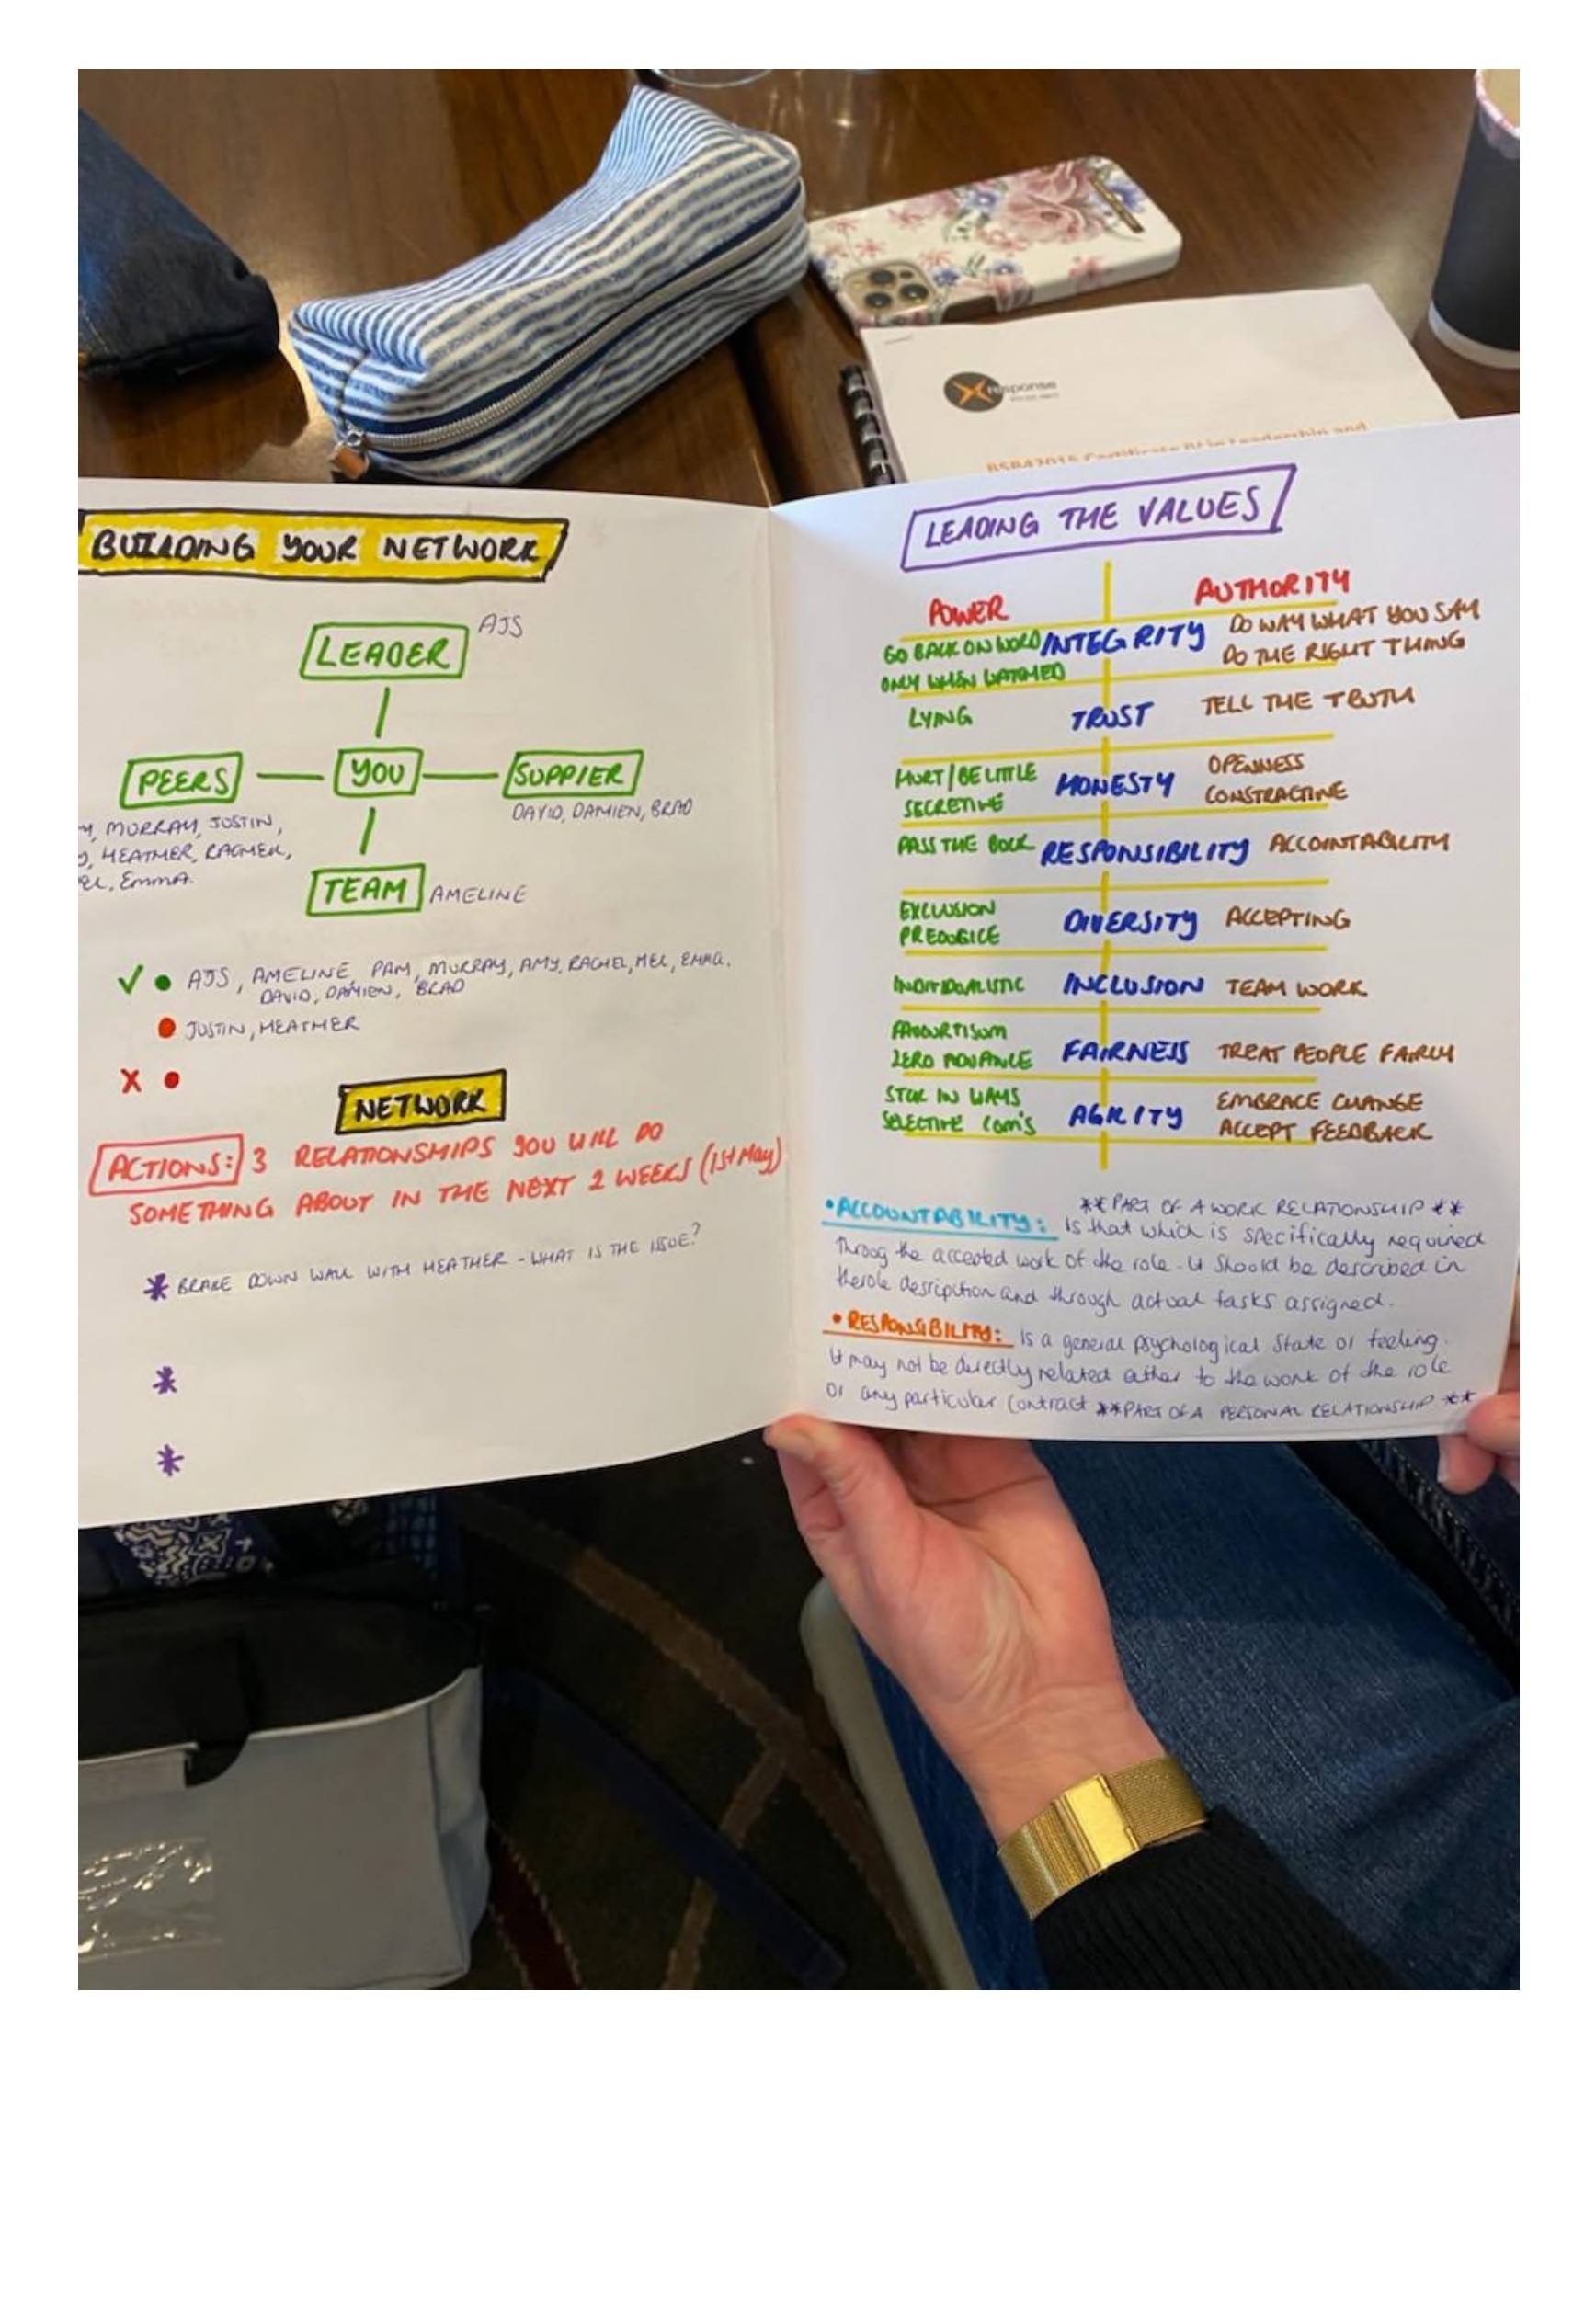 response
BSB42015 Certificate IV in Leadership and
BUILDING YOUR NETWORK
LEADER
AJS
PEERS
YOU
SUPPIER
MURRAY, JUSTIN,
HEATHER, RACHEL,
EMMA.
DAVID, DAMIEN, BRAD
TEAM
AMELINE
✓ • AJS, AMELINE, PAM, MURRAY, AMY, RACHEL, MEL, EMMA.
DAVID, DAMIEN, BRAD
• JUSTIN, HEATHER
X •
NETWORK
ACTIONS: 3 RELATIONSHIPS YOU WILL DO
SOMETHING ABOUT IN THE NEXT 2 WEEKS (1st May)
* BRAKE DOWN WALL WITH HEATHER - WHAT IS THE ISSUE?
*
*
LEADING THE VALUES
POWER
AUTHORITY
GO BACK ON WORD INTEGRITY DO WAY WHAT YOU SAY
ONLY WHEN WATCHED DO THE RIGHT THING
LYING TRUST TELL THE TRUTH
HURT/BELITTLE MONESTY OPENNESS
SECRETIVE CONSTRACTINE
PASS THE BUCK RESPONSIBILITY ACCOINTABILITY
EXCLUSION DIVERSITY ACCEPTING
PREDUGICE
INDIVIDUALISTIC INCLUSION TEAM WORK
FAVOURTISUM FAIRNESS TREAT PEOPLE FAIRLY
ZERO
STUK IN WAYS AGILITY EMBRACE CHANGE
SELECTIVE COM'S ACCEPT FEEDBACK
** PART OF A WORK RELATIONSHIP **
• ACCOUNTABILITY: Is that which is specifically required
Throog the accepted work of the role - it should be described in
therole desription and through actual tasks assigned.
• RESPONSIBILITY: is a general psychological state or feeling.
It may not be directly related either to the work of the role
or any particular contract **PART OF A PERSONAL RELATIONSHIP **